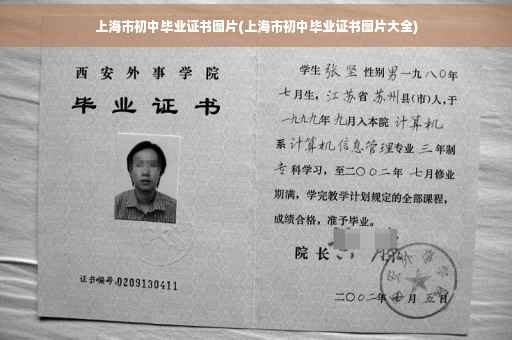 上海市初中毕业证书图片(上海市初中毕业证书图片大全)
西安外事学院
毕业证书
证书编号:0209130411
学生张坚性别男一九八〇年
七月生,江苏省苏州县(市)人,于
一九九九年九月入本院计算机
系计算机信息管理专业三年制
专科学习,至二〇〇二年七月修业
期满,学完教学计划规定的全部课程,
成绩合格,准予毕业。
院长
二〇〇二年 月五日